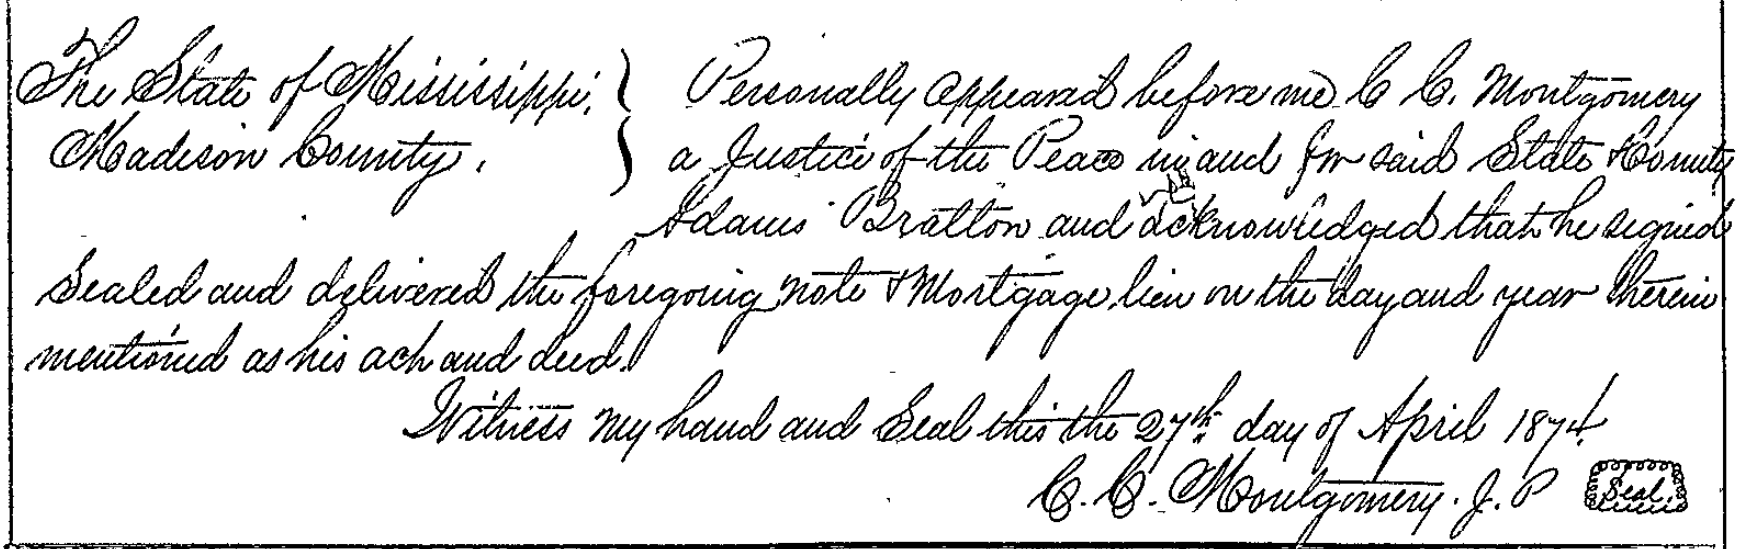 The State of Mississippi, } Personally appeared before me C. C. Montgomery
Madison County. } a Justice of the Peace in and for said State & County
Adams Bratton and acknowledged that he signed
Sealed and delivered the foregoing note & Mortgage lien on the day and year therein
mentioned as his act and deed.
Witness my hand and Seal this the 27th day of April 1874.
C. C. Montgomery. J. P Seal